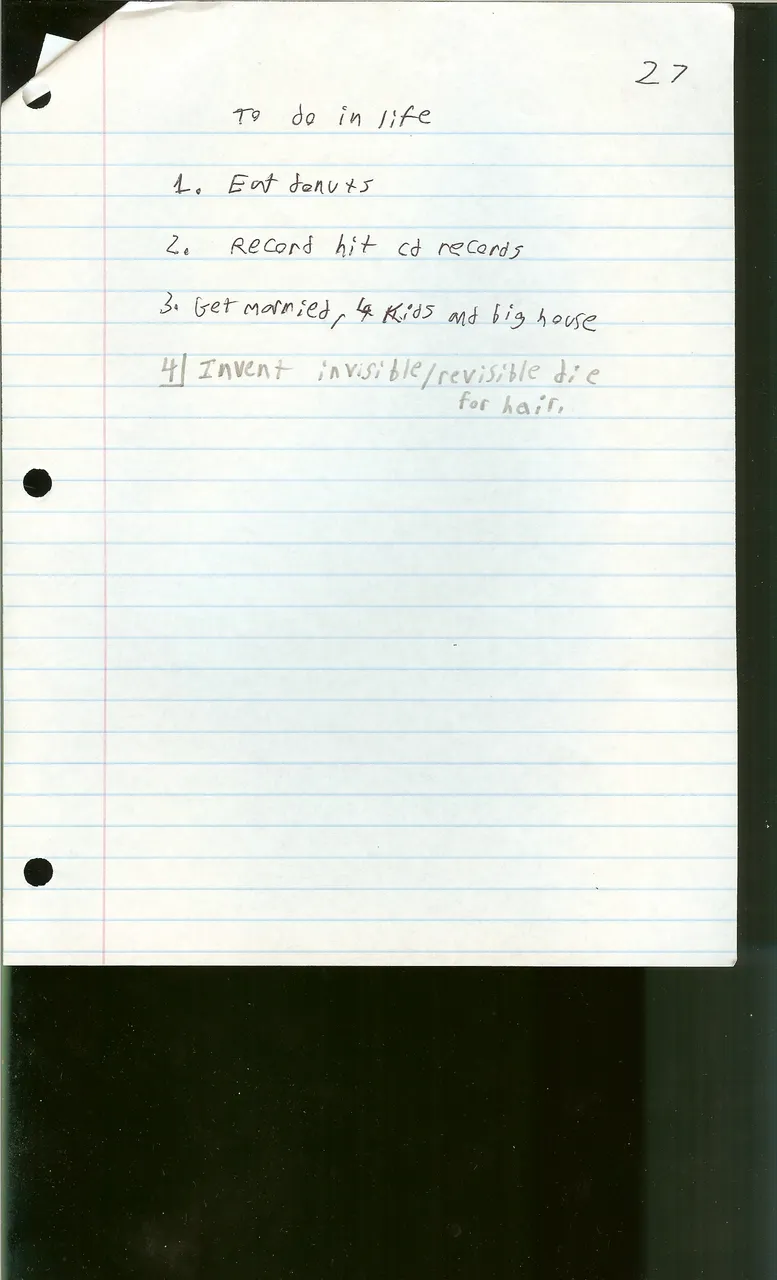 27
To do in life
1. Eat donuts
2. Record hit cd records
3. Get married, 4 kids and big house
4| Invent invisible/revisible die
for hair.